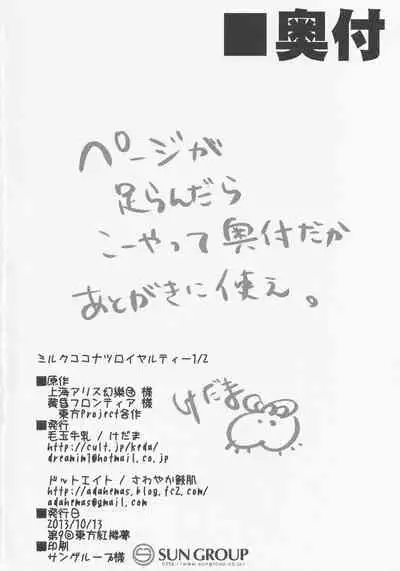 ■奥付
ページが
足らんだら
こーやって奥付だか
あとがきに使え。
ミルクココナツロイヤルティー1/2
けだま
■原作
上海アリス幻樂団 様
黄昏フロンティア 様
東方Project合作
■発行
毛玉牛乳 / けだま
http://cult.jp/keda/
dreamin1@hotmail.co.jp
ドットエイト / さわやか鮫肌
http://adahemas.blog.fc2.com/
adahemas@gmail.com
■発行日
2013/10/13
第9回東方紅楼夢
■印刷
サングループ様
SUN GROUP
http://www.sungroup.co.jp/